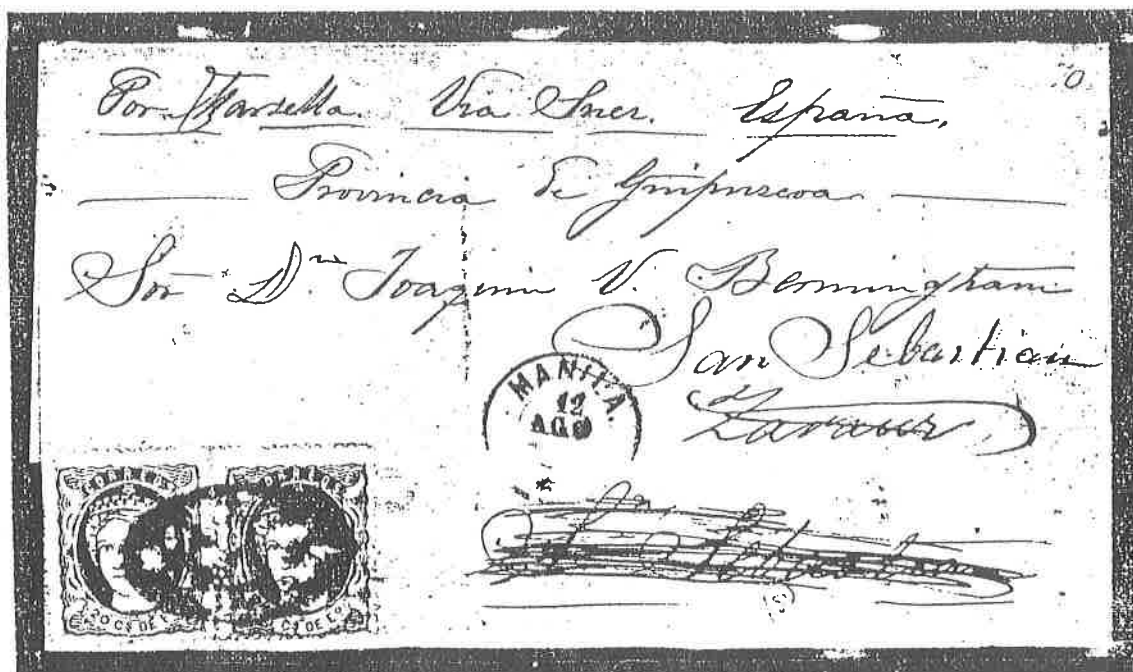 Por Marsella. Via Suez. España.
Provincia de Guipuscoa
Sor Dn Joaquin V. Bermingham
San Sebastian
Zarauz
MANILA.
12
AGO
CORREOS
CORREOS
CS DE E
CS DE E